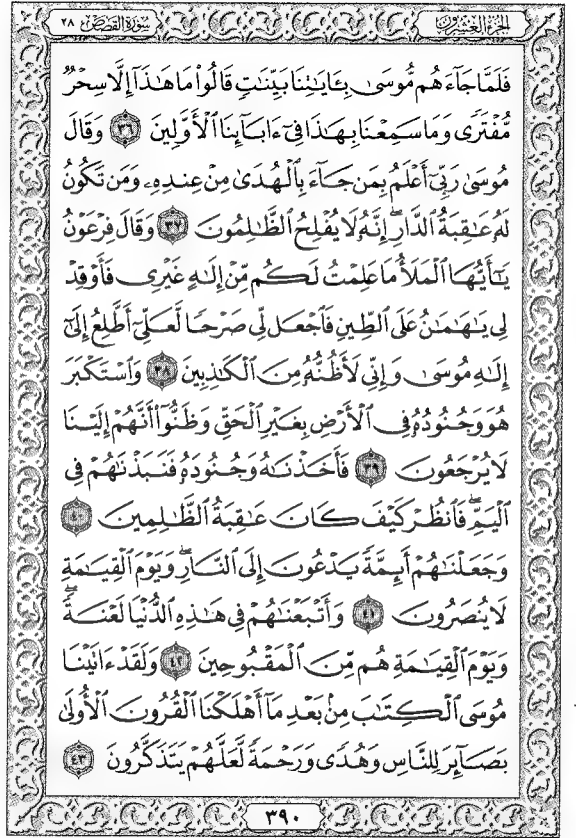 الجزء العشرون
سورة القصص ٢٨
فَلَمَّا جَآءَهُم مُّوسَىٰ بِـَٔايَٰتِنَا بَيِّنَٰتٍ قَالُوا۟ مَا هَٰذَآ إِلَّا سِحْرٌ
مُّفْتَرًى وَمَا سَمِعْنَا بِهَٰذَا فِىٓ ءَابَآئِنَا ٱلْأَوَّلِينَ ٣٦ وَقَالَ
مُوسَىٰ رَبِّىٓ أَعْلَمُ بِمَن جَآءَ بِٱلْهُدَىٰ مِنْ عِندِهِۦ وَمَن تَكُونُ
لَهُۥ عَٰقِبَةُ ٱلدَّارِۖ إِنَّهُۥ لَا يُفْلِحُ ٱلظَّٰلِمُونَ ٣٧ وَقَالَ فِرْعَوْنُ
يَٰٓأَيُّهَا ٱلْمَلَأُ مَا عَلِمْتُ لَكُم مِّنْ إِلَٰهٍ غَيْرِى فَأَوْقِدْ
لِى يَٰهَٰمَٰنُ عَلَى ٱلطِّينِ فَٱجْعَل لِّى صَرْحًا لَّعَلِّىٓ أَطَّلِعُ إِلَىٰٓ
إِلَٰهِ مُوسَىٰ وَإِنِّى لَأَظُنُّهُۥ مِنَ ٱلْكَٰذِبِينَ ٣٨ وَٱسْتَكْبَرَ
هُوَ وَجُنُودُهُۥ فِى ٱلْأَرْضِ بِغَيْرِ ٱلْحَقِّ وَظَنُّوٓا۟ أَنَّهُمْ إِلَيْنَا
لَا يُرْجَعُونَ ٣٩ فَأَخَذْنَٰهُ وَجُنُودَهُۥ فَنَبَذْنَٰهُمْ فِى
ٱلْيَمِّۖ فَٱنظُرْ كَيْفَ كَانَ عَٰقِبَةُ ٱلظَّٰلِمِينَ ٤٠
وَجَعَلْنَٰهُمْ أَئِمَّةً يَدْعُونَ إِلَى ٱلنَّارِۖ وَيَوْمَ ٱلْقِيَٰمَةِ
لَا يُنصَرُونَ ٤١ وَأَتْبَعْنَٰهُمْ فِى هَٰذِهِ ٱلدُّنْيَا لَعْنَةًۖ
وَيَوْمَ ٱلْقِيَٰمَةِ هُم مِّنَ ٱلْمَقْبُوحِينَ ٤٢ وَلَقَدْ ءَاتَيْنَا
مُوسَى ٱلْكِتَٰبَ مِنۢ بَعْدِ مَآ أَهْلَكْنَا ٱلْقُرُونَ ٱلْأُولَىٰ
بَصَآئِرَ لِلنَّاسِ وَهُدًى وَرَحْمَةً لَّعَلَّهُمْ يَتَذَكَّرُونَ ٤٣
٣٩٠